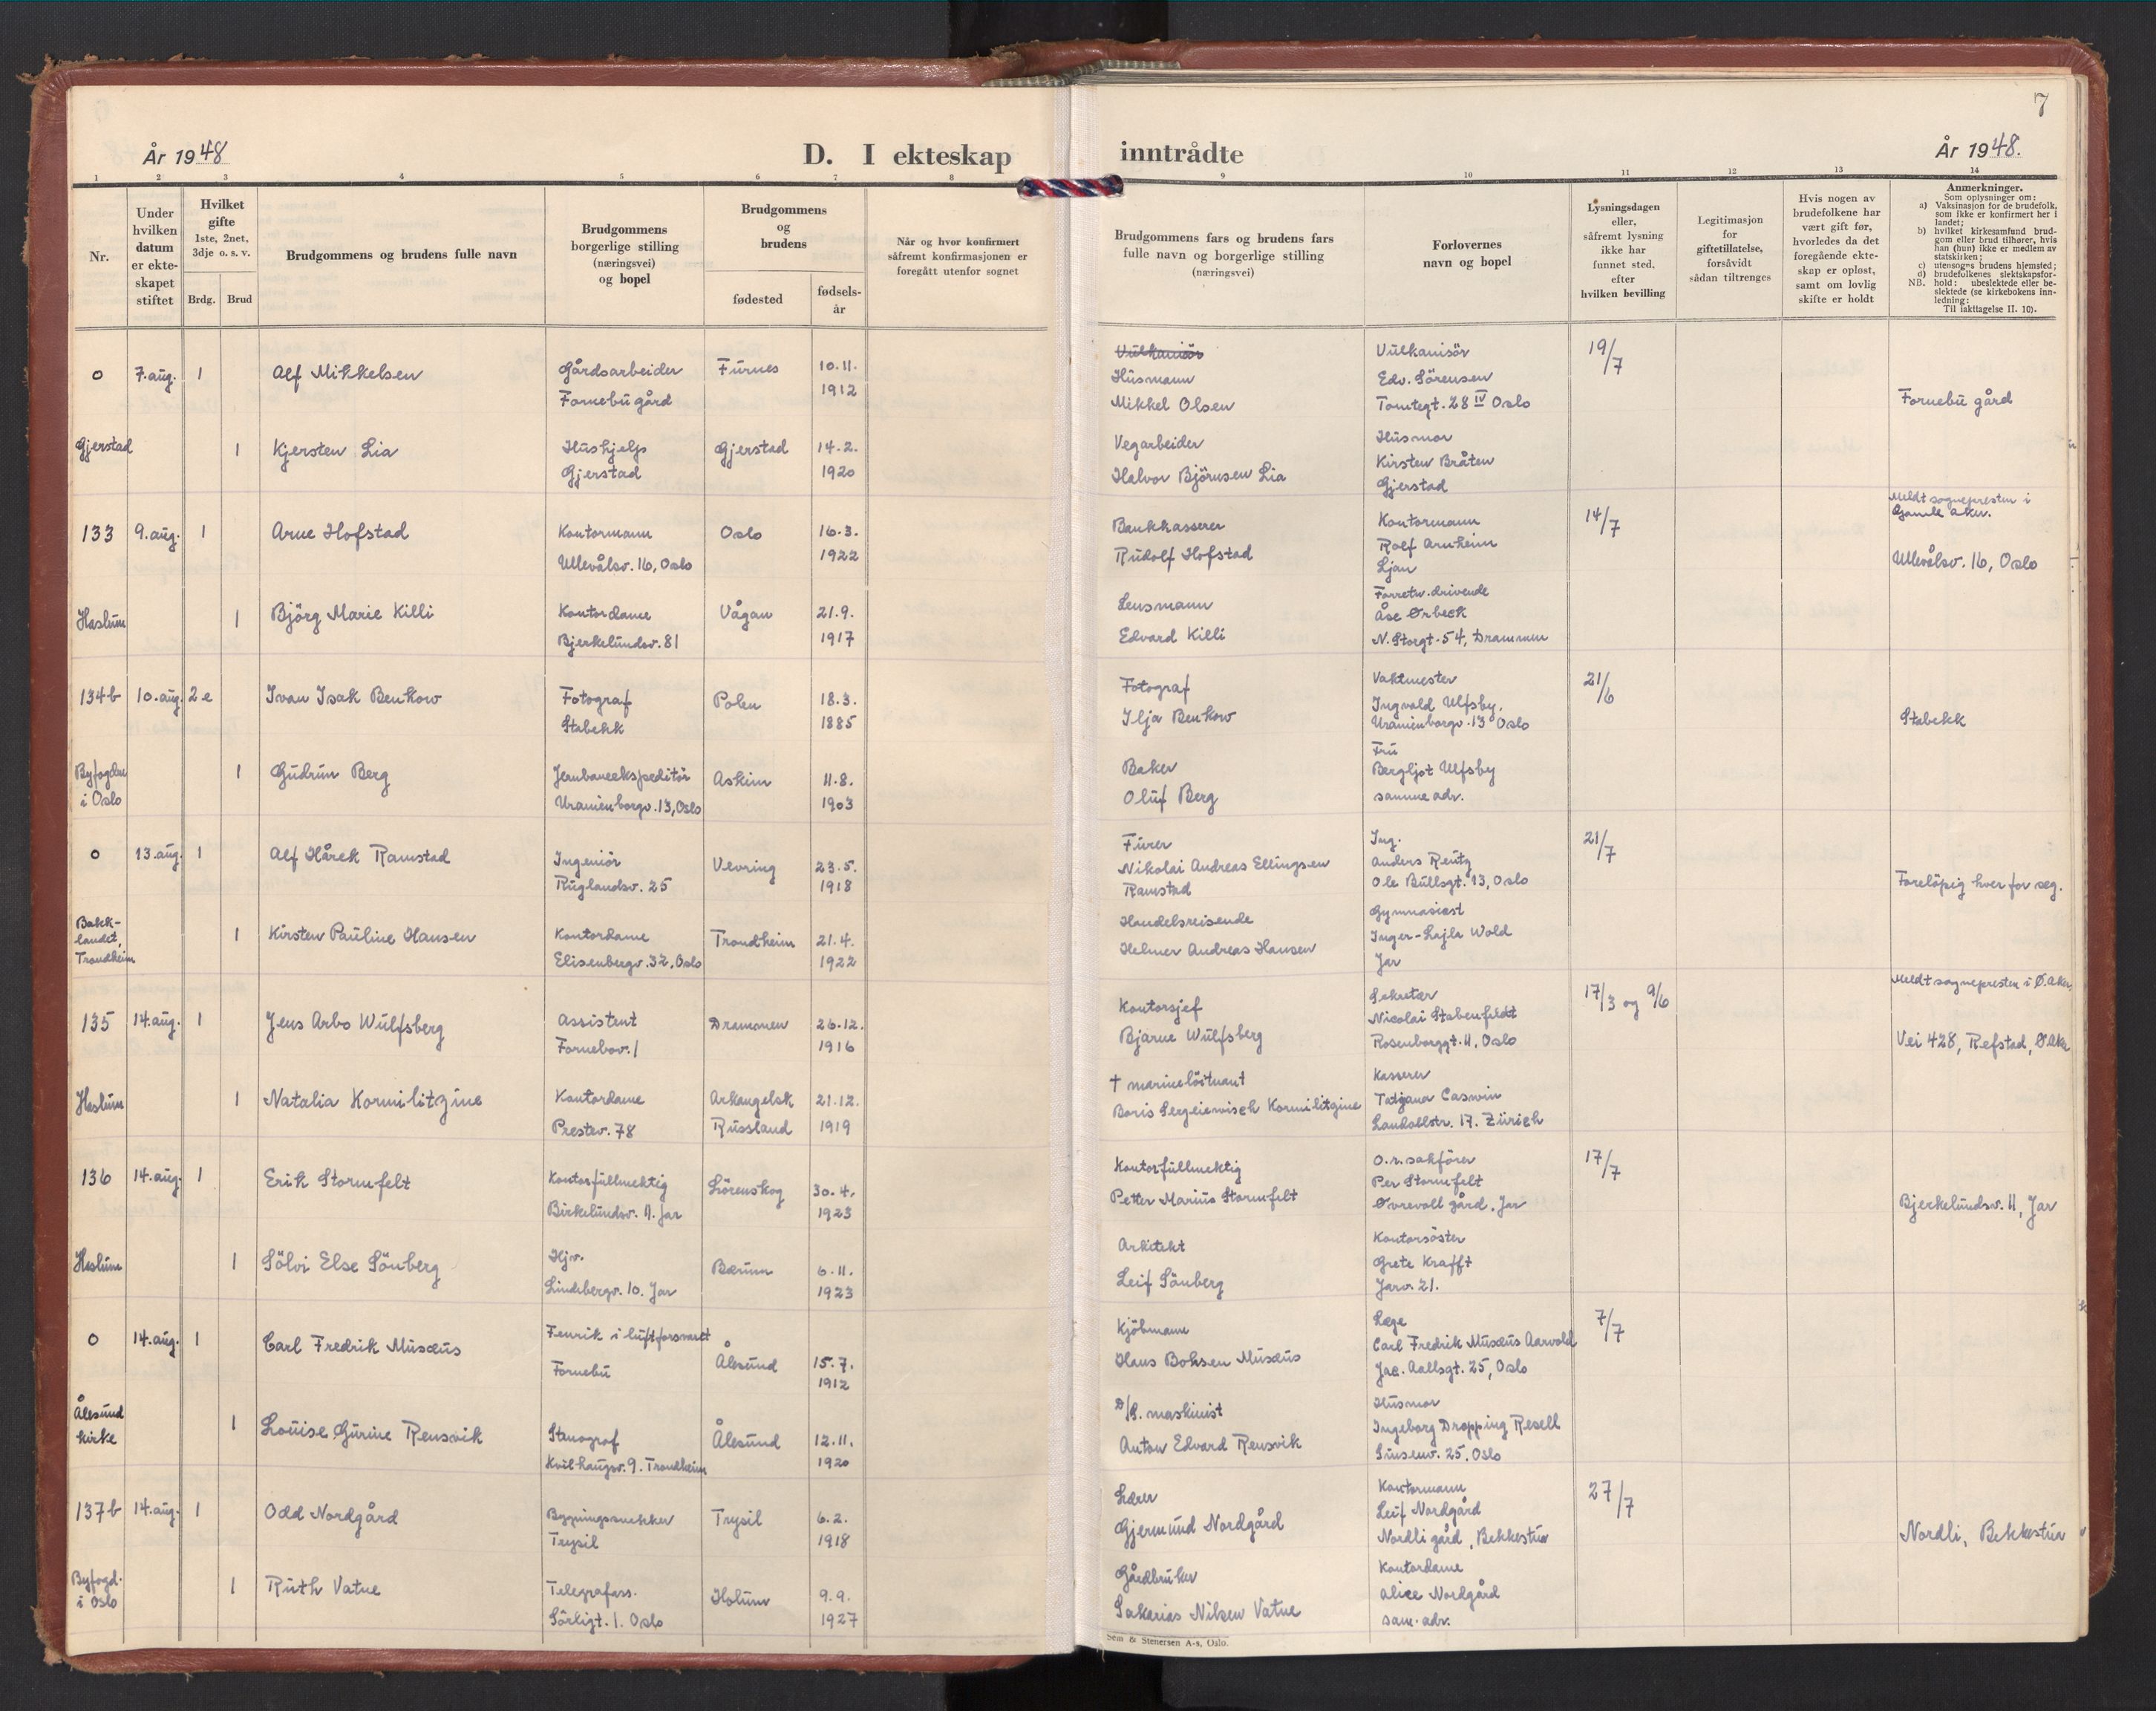 7
År 1948
D. I ekteskap
inntrådte
År 1948.
1 2 3 4 5 6 7 8 9 10 11 12 13 14
Nr.
Under
hvilken
datum
er ekte-
skapet
stiftet
Hvilket
gifte
1ste, 2net,
3dje o. s. v.
Brdg.
Brud
Brudgommens og brudens fulle navn
Brudgommens
borgerlige stilling
(næringsvei)
og bopel
Brudgommens
og
brudens
fødested
fødsels-
år
Når og hvor konfirmert
såfremt konfirmasjonen er
foregått utenfor sognet
Brudgommens fars og brudens fars
fulle navn og borgerlige stilling
(næringsvei)
Forlovernes
navn og bopel
Lysningsdagen
eller,
såfremt lysning
ikke har
funnet sted,
efter
hvilken bevilling
Legitimasjon
for
giftetillatelse,
forsåvidt
sådan tiltrenges
Hvis nogen av
brudefolkene har
vært gift før,
hvorledes da det
foregående ekte-
skap er opløst,
samt om lovlig
skifte er holdt
Anmerkninger.
Som oplysninger om:
a) Vaksinasjon for de brudefolk,
som ikke er konfirmert her i
landet;
b) hvilket kirkesamfund brud-
gom eller brud tilhører, hvis
han (hun) ikke er medlem av
statskirken;
c) utensogns brudens hjemsted;
d) brudefolkenes slektskapsfor-
NB. hold: ubeslektede eller be-
slektede (se kirkebokens inn-
ledning:
Til iakttagelse II. 10).
0 7. aug. 1 Alf Mikkelsen
Gårdsarbeider
Fornebu gård
Furnes
10.11.
1912
Vulkanisör
Husmann
Mikkel Olsen
Vulkanisör
Edv. Sörensen
Tomtegt. 28 IV Oslo
19/7
Fornebu gård
Gjerstad 1 Kjersten Lia
Hushjelp
Gjerstad
Gjerstad
14.2.
1920
Vegarbeider
Halvor Björnsen Lia
Husmor
Kirsten Bråten
Gjerstad
133 9. aug. 1 Arne Hofstad
Kontormann
Ullevålsv. 16, Oslo
Oslo
16.3.
1922
Bankkasserer
Rudolf Hofstad
Kontormann
Rolf Arnheim
Ljan
14/7
Meldt sognepresten i
Gamle Aker.
Ullevålsv. 16, Oslo
Haslum 1 Björg Marie Killi
Kontordame
Bjerkelundsv. 81
Vågan
21.9.
1917
Lensmann
Edvard Killi
Forretn.drivende
Åse Ørbeck
N. Storgt. 54, Drammen
134b 10. aug. 2e Ivan Isak Benkow
Fotograf
Stabekk
Polen
18.3.
1885
Fotograf
Ilja Benkow
Vaktmester
Ingvald Ulfsby,
Uranienborgv. 13 Oslo
21/6
Stabekk
Byfogden
i Oslo
1 Gudrun Berg
Jernbaneekspeditör
Uranienborgv. 13, Oslo
Askim
11.8.
1903
Baker
Oluf Berg
Fru
Bergljot Ulfsby
samme adr.
0 13. aug. 1 Alf Hårek Ramstad
Ingeniör
Ruglandsv. 25
Vevring
23.5.
1918
Furer
Nikolai Andreas Ellingsen
Ramstad
Ing.
Anders Rentz
Ole Bullsgt. 13, Oslo
21/7
Foreløpig hver for seg.
Bakk-
landet,
Trondheim
1 Kirsten Pauline Hansen
Kontordame
Elisenbergv. 32, Oslo
Trondheim
21.4.
1922
Handelsreisende
Helmer Andreas Hansen
Gymnasiast
Inger-Lajla Wold
Jar
135 14. aug. 1 Jens Arbo Wulfsberg
Assistent
Fornebov. 1
Drammen
26.12.
1916
Kontorsjef
Bjarne Wulfsberg
Sekretær
Nicolai Stabenfeldt
Rosenborggt. 11, Oslo
17/3 og 9/6
Meldt sognepresten i Ø. Aker.
Vei 428, Refstad, Ø. Aker
Haslum 1 Natalia Kormilitzine
Kontordame
Prestev. 78
Arkangelsk
Russland
21.12.
1919
† marinelöitnant
Boris Sergeiewisch Kormilitzine
Kasserer
Tatjana Caswin
17. Zürich
136 14. aug. 1 Erik Stormfelt
Kontorfullmektig
Birkelundsv. 11. Jar
Lörenskog
30.4.
1923
Kontorfullmektig
Petter Marius Stormfelt
O.r.sakförer
Per Stormfelt
Øvrevoll gård, Jar
17/7
Bjerkelundsv. 11, Jar
Haslum 1 Sölvi Else Sönberg
Hjv.
Lindebergv. 10. Jar
Bærum
6.11.
1923
Arkitekt
Leif Sönberg
Kontorsöster
Grete Krafft
Jarv. 21.
0 14. aug. 1 Carl Fredrik Musæus
Fenrik i luftforsvaret
Fornebu
Ålesund
15.7.
1912
Kjöbmann
Hans Boksen Musæus
Læge
Carl Fredrik Musæus Aarvold
Jac. Aallsgt. 25, Oslo
7/7
Ålesund
kirke
1 Louise Gurine Rensvik
Stenograf
Kvilhaugsv. 9. Trondheim
Ålesund
12.11.
1920
D/S. maskinist
Anton Edvard Rensvik
Husmor
Ingeborg Dropping Resell
Sinsenv. 25. Oslo
137b 14. aug. 1 Odd Nordgård
Bygningssnekker
Trysil
Trysil
6.2.
1918
Lærer
Gjermund Nordgård
Kontormann
Leif Nordgård
Nordli gård, Bekkestua
27/7
Nordli, Bekkestua
Byfogd.
i Oslo
1 Ruth Vatne
Telegrafass.
Sörligt. 1. Oslo
Holum
9.9.
1927
Gårdbruker
Sakarias Nilsen Vatne
Kontordame
Alice Nordgård
sam. adr.
Sem & Stenersen A-s, Oslo.